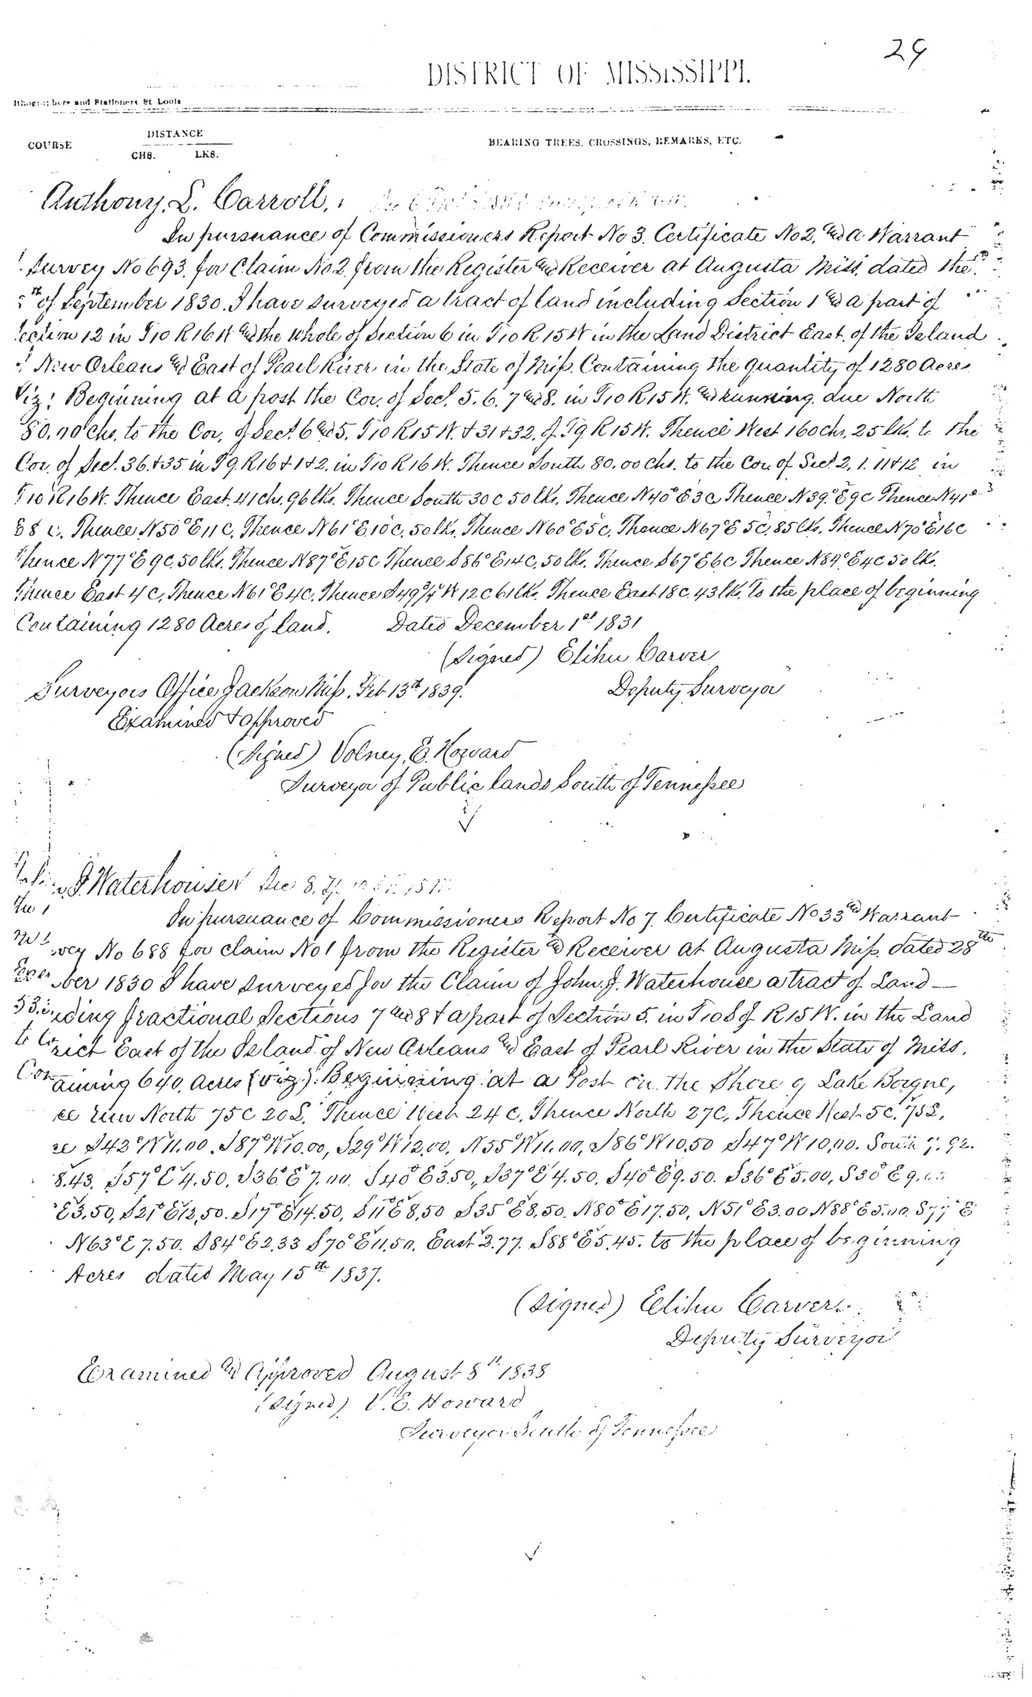 29
DISTRICT OF MISSISSIPPI.
and Stationers St. Louis
COURSE DISTANCE BEARING TREES, CROSSINGS, REMARKS, ETC.
CHS. LKS.
Anthony. L. Carroll,
In pursuance of Commissioners Report No 3. Certificate No 2, and a Warrant
Survey No 693. for Claim No. 2. from the Register and Receiver at Augusta Miss. dated the
of September 1830. I have surveyed a tract of land including Section 1 and a part of
ection 12 in T10 R16W and the whole of Section 6 in T10 R15W in the Land District East of the Island
New Orleans and East of Pearl River in the State of Miss. Containing the quantity of 1280 Acres
Viz: Beginning at a post the Cor. of Sec. 5. 6. 7 and 8. in T10 R15W. and running due North
80.40 chs. to the Cor. of Sect. 6 and 5. T10 R15W. & 31 & 32. of T9 R15W. Thence West 160 chs. 25 lks. to the
Cor. of Sec. 36 & 35 in T9. R16 & 1 & 2. in T10 R16W. Thence South 80.00 chs. to the Cor. of Sect 2. 1. 11 & 12 in
T10 R16W. Thence East 41 chs. 96 lks. Thence South 30 c 50 lks. Thence N40°E 3 C Thence N39°E 9c Thence N41°
E 8 c. Thence N50°E 11 C, Thence N61°E 10 C, 50 lks. Thence N60°E 5 C, Thence N67°E 5 C, 85 lks. Thence N70°E 16 C
Thence N77°E 9 C, 50 lks. Thence N87°E 15 C Thence S86°E 14 C, 50 lks. Thence S67°E 6 C Thence N84°E 4 C 50 lks.
Thence East 4 C, Thence N61°E 4 C, Thence S49¾°W 12 C 61 lk. Thence East 18 C. 43 lk. to the place of beginning
Containing 1280 Acres of land. Dated December 1st 1831
(Signed) Elihu Carver
Surveyors Office Jackson Miss. Feb 13th 1839. Deputy Surveyor
Examined & approved
(Signed) Volney. E. Howard
Surveyor of Public lands South of Tennessee
J. Waterhouse
In pursuance of Commissioners Report No 7. Certificate No 33 and Warrant
vey No 688 for claim No 1 from the Register and Receiver at Augusta Miss. dated 28th
ber 1830 I have surveyed for the Claim of John. J. Waterhouse a tract of Land
ding fractional Sections 7 and 8 & a part of Section 5. in T10 S of R15W. in the Land
rict East of the Island of New Orleans and East of Pearl River in the State of Miss.
aining 640 Acres (viz): Beginning at a Post on the Shore of Lake Borgne,
ce run North 75 C 20 L, Thence West 24 C, Thence North 27 C, Thence West 5 C, 75 L,
ce S42°W 11.00, S87°W 10.00, S29°W 12.00, N55°W 11.00, S86°W 10.50 S47°W 10.00. South
8.43. S57°E 4.50. S36°E 7.00. S40°E 3.50, S37°E 4.50. S40°E 9.50. S36°E 5.00, S30°E
E 3.50, S21°E 12.50. S17°E 14.50, S11°E 8.50 S35°E 8.50. N80°E 17.50, N51°E 3.00 N88°E 5.00. S77°E
N63°E 7.50. S84°E 2.33 S70°E 11.50. East 2.77. S88°E 5.45. to the place of beginning
Acres dated May 15th 1837.
(Signed) Elihu Carver
Deputy Surveyor
Examined and Approved August 8th 1838
(Signed) V. E. Howard
Surveyor South of Tennessee